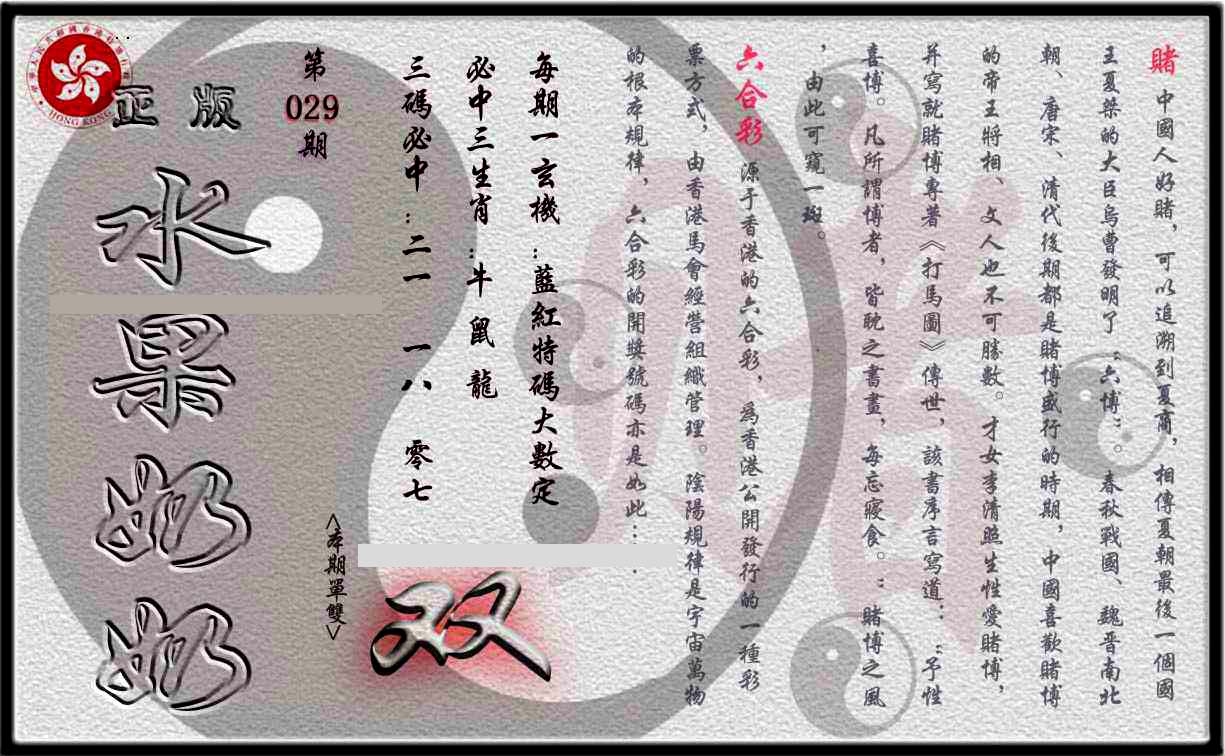 賭 中國人好賭，可以追溯到夏商，相傳夏朝最後一個國
王夏桀的大臣烏曹發明了“六博”。春秋戰國、魏晉南北
朝、唐宋、清代後期都是賭博盛行的時期，中國喜歡賭博
的帝王將相、文人也不可勝數。才女李清照生性愛賭博，
并寫就賭博專著《打馬圖》傳世，該書序言寫道：“予性
喜博。凡所謂博者，皆耽之晝夜，每忘寢食。”賭博之風
，由此可窺一斑。
六合彩 源于香港的六合彩，為香港公開發行的一種彩
票方式，由香港馬會經營組織管理。陰陽規律是宇宙萬物
的根本規律，六合彩的開獎號碼亦是如此……
每期一玄機：藍紅特碼大數定
必中三生肖：牛 鼠 龍
三碼必中：二一 一八 零七
第
029
期
<本期單雙>
双
正版
水果奶奶
HONG KONG